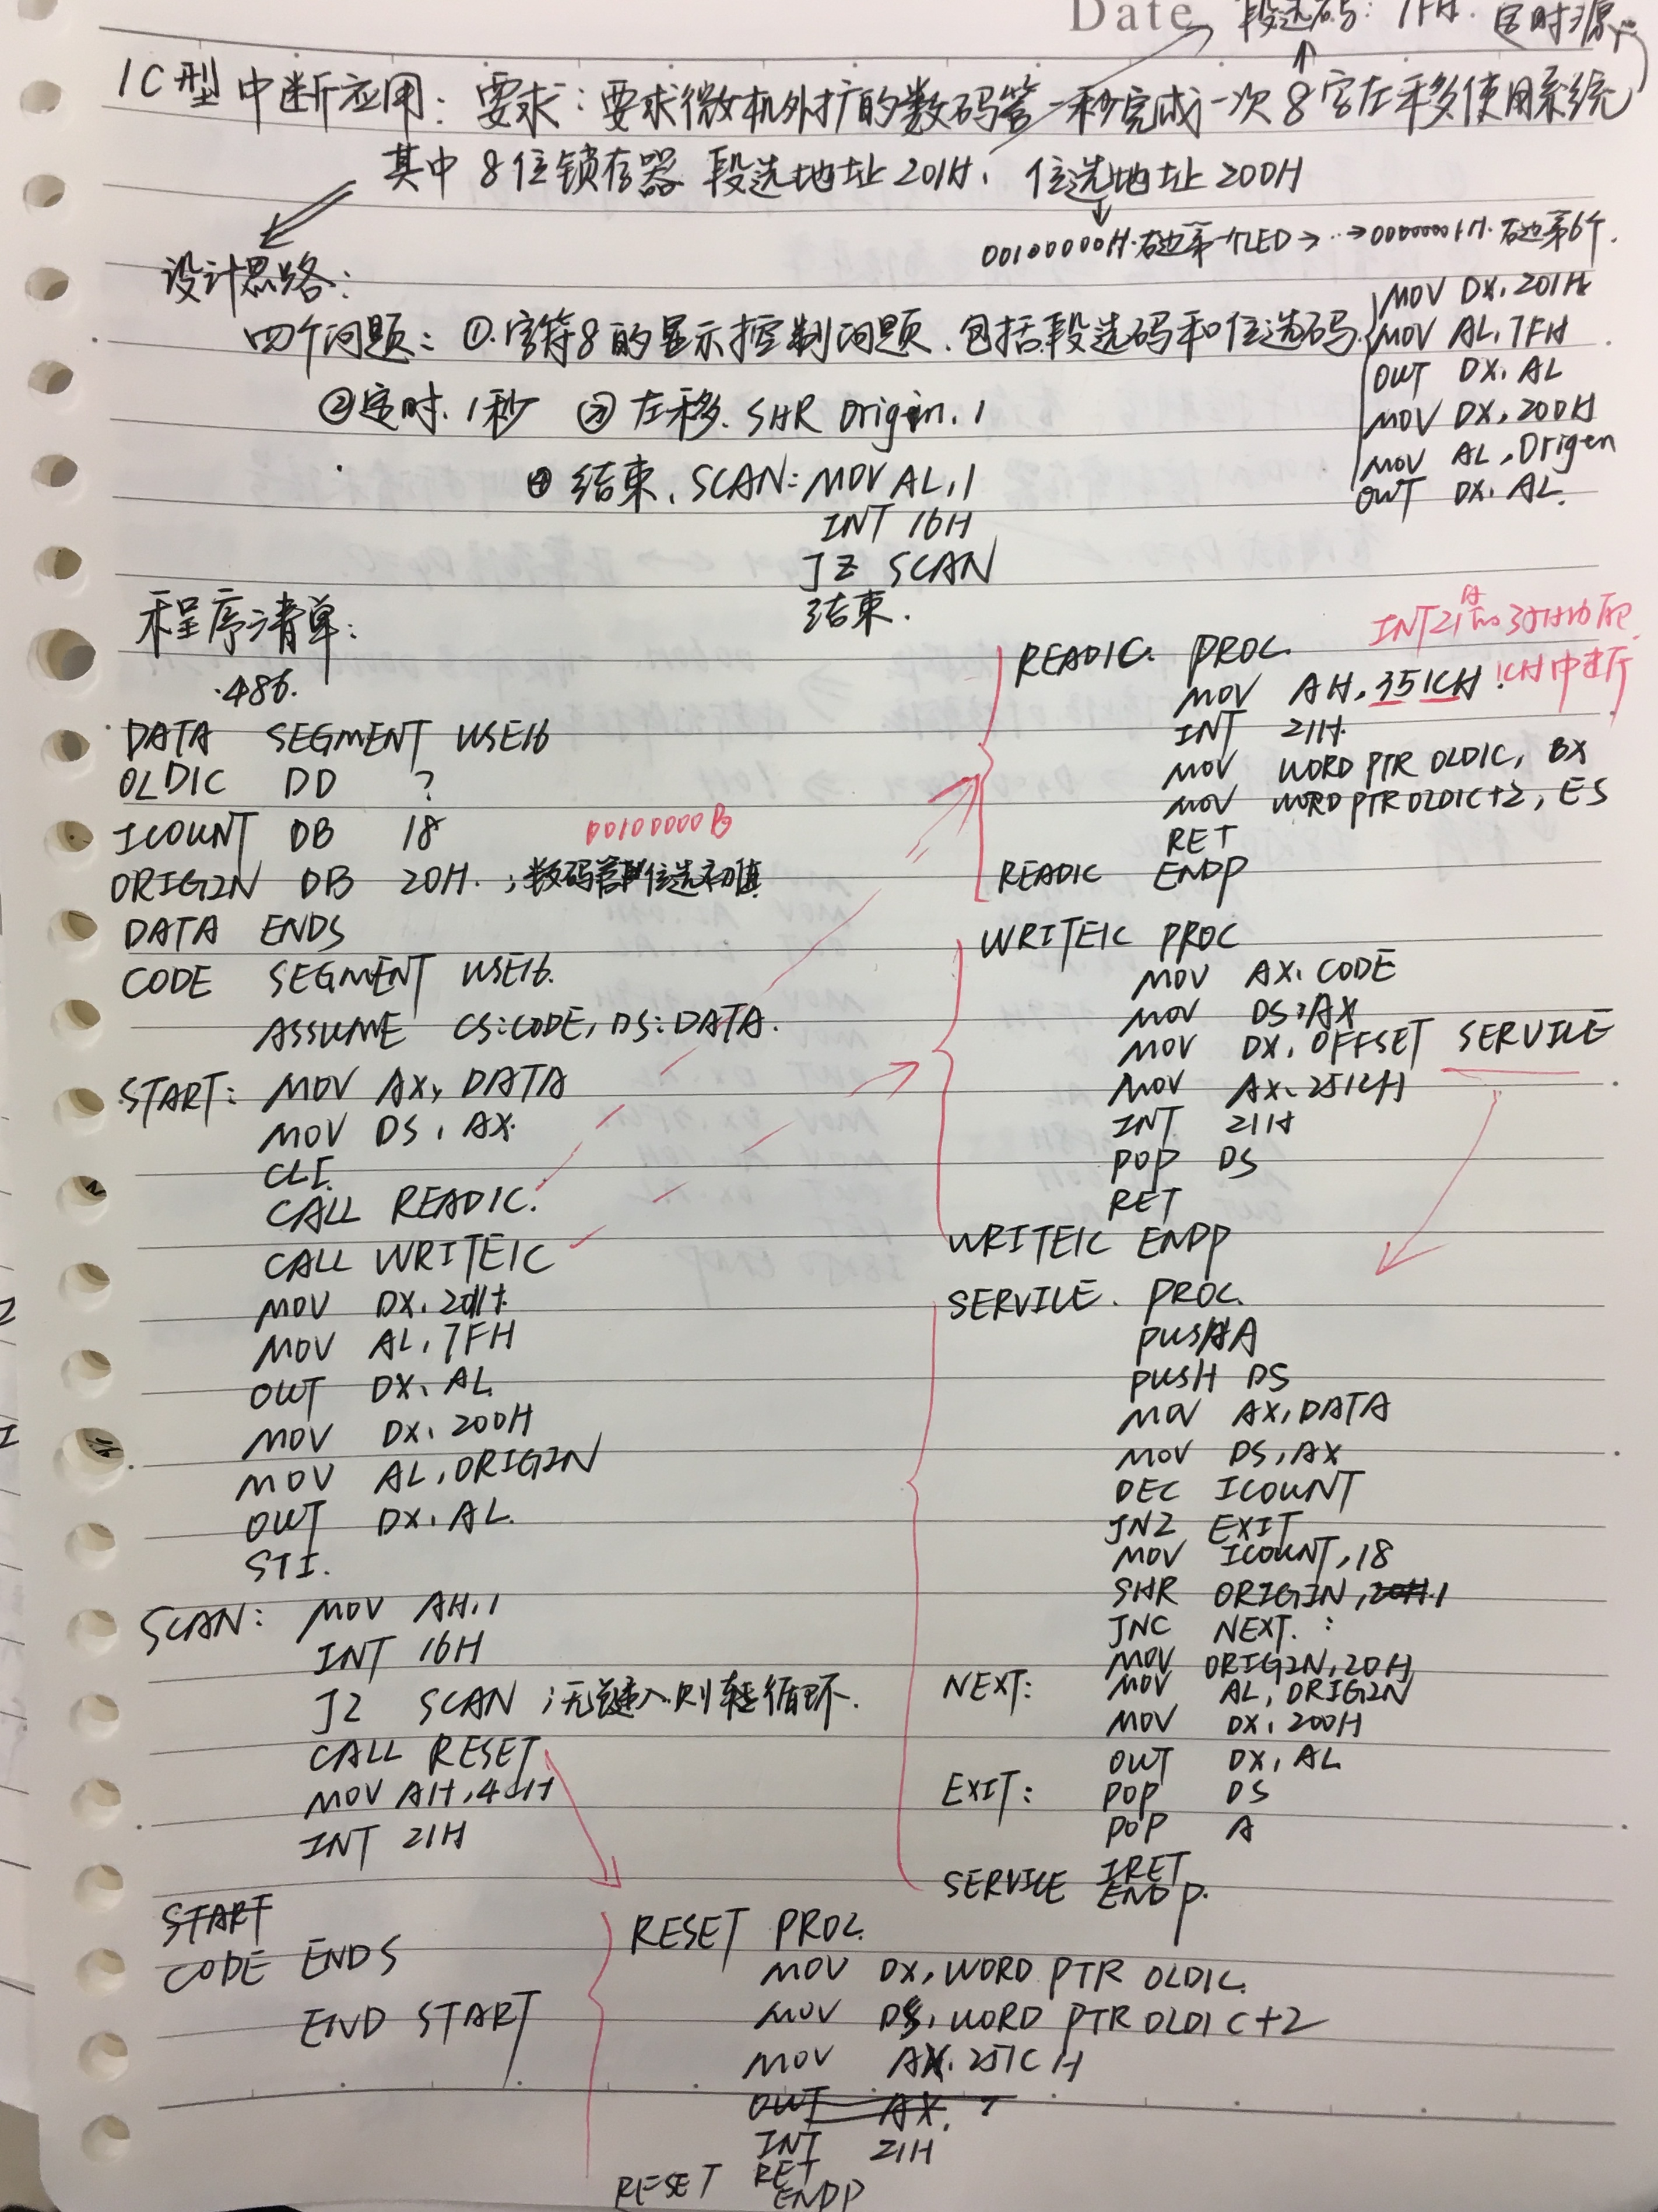 Date 段选码: 7FH. 定时源
1C型中断应用: 要求: 要求微机外扩的数码管一秒完成一次8字左移使用系统
其中8位锁存器 段选地址201H、位选地址200H
00100000H.右边第一个LED→ ‥→00000001H.右边第6个.
设计思路:
四个问题: ①.字符8的显示控制问题.包括段选码和位选码.
MOV DX,201H
MOV AL,7FH
OUT DX,AL
MOV DX,200H
MOV AL,Origen
OUT DX,AL.
②定时.1秒 ③左移. SHR Origin,1
④结束、SCAN: MOV AL,1
INT 16H
JZ SCAN
结束.
程序清单:
.486.
DATA SEGMENT USE16
OLDIC DD ?
ICOUNT DB 18
00100000B
ORIGIN DB 20H. ;数码管位选初值
DATA ENDS
CODE SEGMENT USE16.
ASSUME CS:CODE, DS:DATA.
START: MOV AX, DATA
MOV DS, AX.
CLI.
CALL READIC.
CALL WRITE1C
MOV DX,201H
MOV AL,7FH
OUT DX,AL
MOV DX,200H
MOV AL,ORIGIN
OUT DX,AL.
STI.
SCAN: MOV AH,1
INT 16H
JZ SCAN ;无键入则转循环.
CALL RESET
MOV AH,4CH
INT 21H
START
CODE ENDS
END START
INT21H的35H功能
1CH中进行
READIC. PROC.
MOV AH,351CH
INT 21H.
MOV WORD PTR OLDIC, BX
MOV WORD PTR OLDIC+2, ES
RET
READIC ENDP
WRITE1C PROC
MOV AX,CODE
MOV DS,AX
MOV DX,OFFSET SERVICE
MOV AX,251CH
INT 21H
POP DS
RET
WRITE1C ENDP
SERVICE. PROC.
PUSHA
PUSH DS
MOV AX,DATA
MOV DS,AX
DEC ICOUNT
JNZ EXIT
MOV ICOUNT,18
SHR ORIGIN,20H.1
JNC NEXT.
MOV ORIGIN,20H
NEXT: MOV AL,ORIGIN
MOV DX,200H
OUT DX,AL
EXIT: POP DS
POP A
IRET
SERVICE ENDP.
RESET PROC.
MOV DX,WORD PTR OLDIC
MOV DS,WORD PTR OLDIC+2
MOV AX,251CH
OUT AX.
INT 21H
RET
RESET ENDP